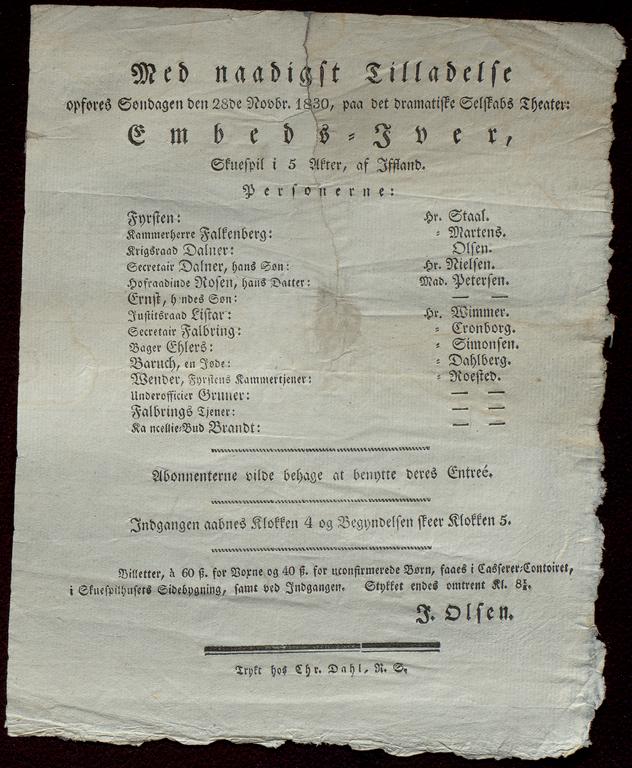 Med naadigst Tilladelse
opføres Søndagen den 28de Novbr. 1830, paa det dramatiske Selskabs Theater:
Embeds-Iver,
Skuespil i 5 Akter, af Iffland.
Personerne:
Fyrsten: Hr. Staal.
Kammerherre Falkenberg: - Martens.
Krigsraad Dalner: Olsen.
Secretair Dalner, hans Søn: Hr. Nielsen.
Hofraadinde Rosen, hans Datter: Mad. Petersen.
Ernst, hendes Søn: — —
Justitsraad Listar: Hr. Wimmer.
Secretair Falbring: - Cronborg.
Bager Ehlers: - Simonsen.
Baruch, en Jøde: - Dahlberg.
Wender, Fyrstens Kammertjener: - Roested.
Underofficier Gruner: — —
Falbrings Tjener: — —
Kancellie-Bud Brandt: — —
Abonnenterne vilde behage at benytte deres Entreé.
Indgangen aabnes Klokken 4 og Begyndelsen skeer Klokken 5.
Billetter, à 60 ß. for Voxne og 40 ß. for uconfirmerede Børn, faaes i Casserer-Contoiret,
i Skuespilhusets Sidebygning, samt ved Indgangen. Stykket endes omtrent Kl. 8½.
J. Olsen.
Trykt hos Chr. Dahl, R. S.